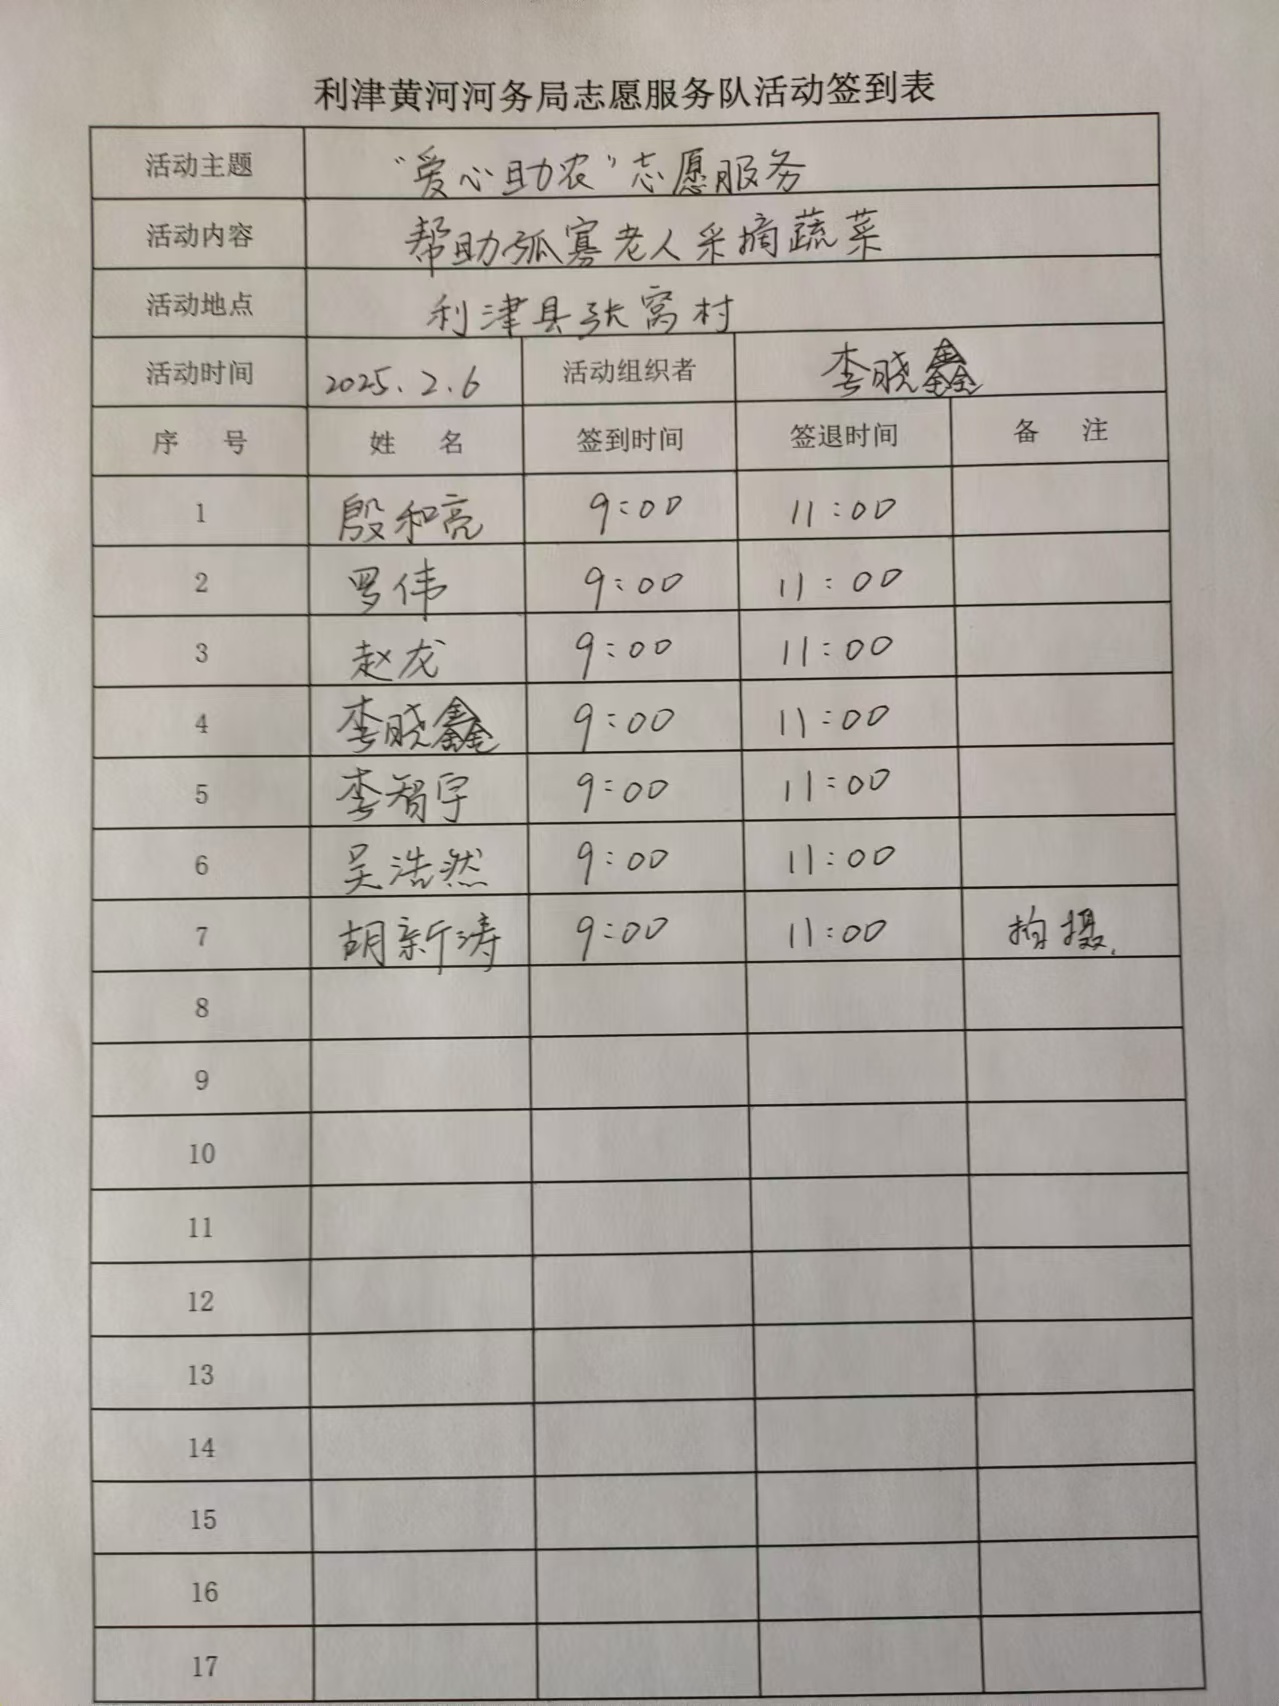 利津黄河河务局志愿服务队活动签到表
活动主题 “爱心助农”志愿服务
活动内容 帮助孤寡老人采摘蔬菜
活动地点 利津县张窝村
活动时间 2025.2.6 活动组织者 李晓鑫
序 号 姓 名 签到时间 签退时间 备 注
1 殷和亮 9:00 11:00
2 罗伟 9:00 11:00
3 赵龙 9:00 11:00
4 李晓鑫 9:00 11:00
5 李智宇 9:00 11:00
6 吴浩然 9:00 11:00
7 胡新涛 9:00 11:00 拍摄.
8
9
10
11
12
13
14
15
16
17